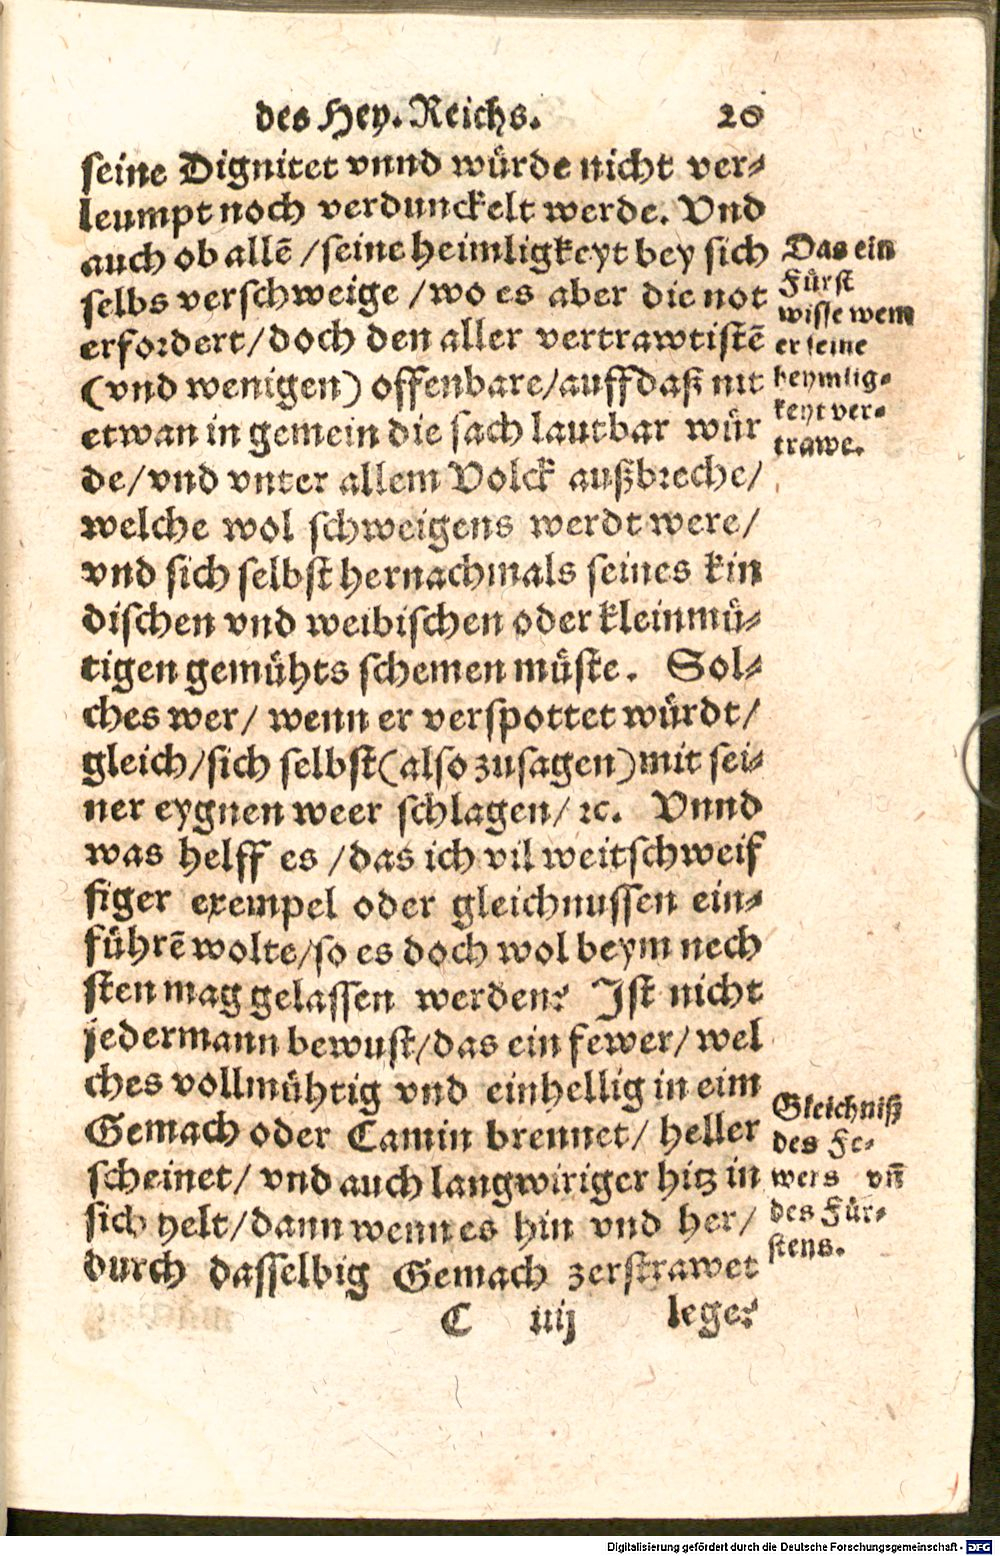 des Hey. Reichs. 20
seine Dignitet vnnd würde nicht ver-
leumpt noch verdunckelt werde. Vnd
auch ob allē /seine heimligkeyt bey sich
selbs verschweige /wo es aber die not
erfordert/doch den aller vertrawtistē
(vnd wenigen) offenbare/auffdaß nit
etwan in gemein die sach lautbar wür
de/vnd vnter allem Volck außbreche/
welche wol schweigens werdt were/
vnd sich selbst hernachmals seines kin
dischen vnd weibischen oder kleinmü-
tigen gemühts schemen müste. Sol-
ches wer/ wenn er verspottet würdt/
gleich/sich selbst(also zusagen)mit sei-
ner eygnen weer schlagen/ ꝛc. Vnnd
was helff es /das ich vil weitschweif
figer exempel oder gleichnussen ein-
führē wolte/so es doch wol beym nech
sten mag gelassen werden? Ist nicht
jedermann bewust/das ein fewer/ wel
ches vollmühtig vnd einhellig in eim
Gemach oder Camin brennet/ heller
scheinet/ vnd auch langwiriger hitz in
sich helt/dann wenn es hin vnd her/
durch dasselbig Gemach zerstrawet
C iiij lege?
Das ein
Fürst
wisse wem
er seine
heymlig-
keyt ver-
trawe.
Gleichniß
des Fe-
wers vn̄
des Für-
stens.
Digitalisierung gefördert durch die Deutsche Forschungsgemeinschaft - DFG